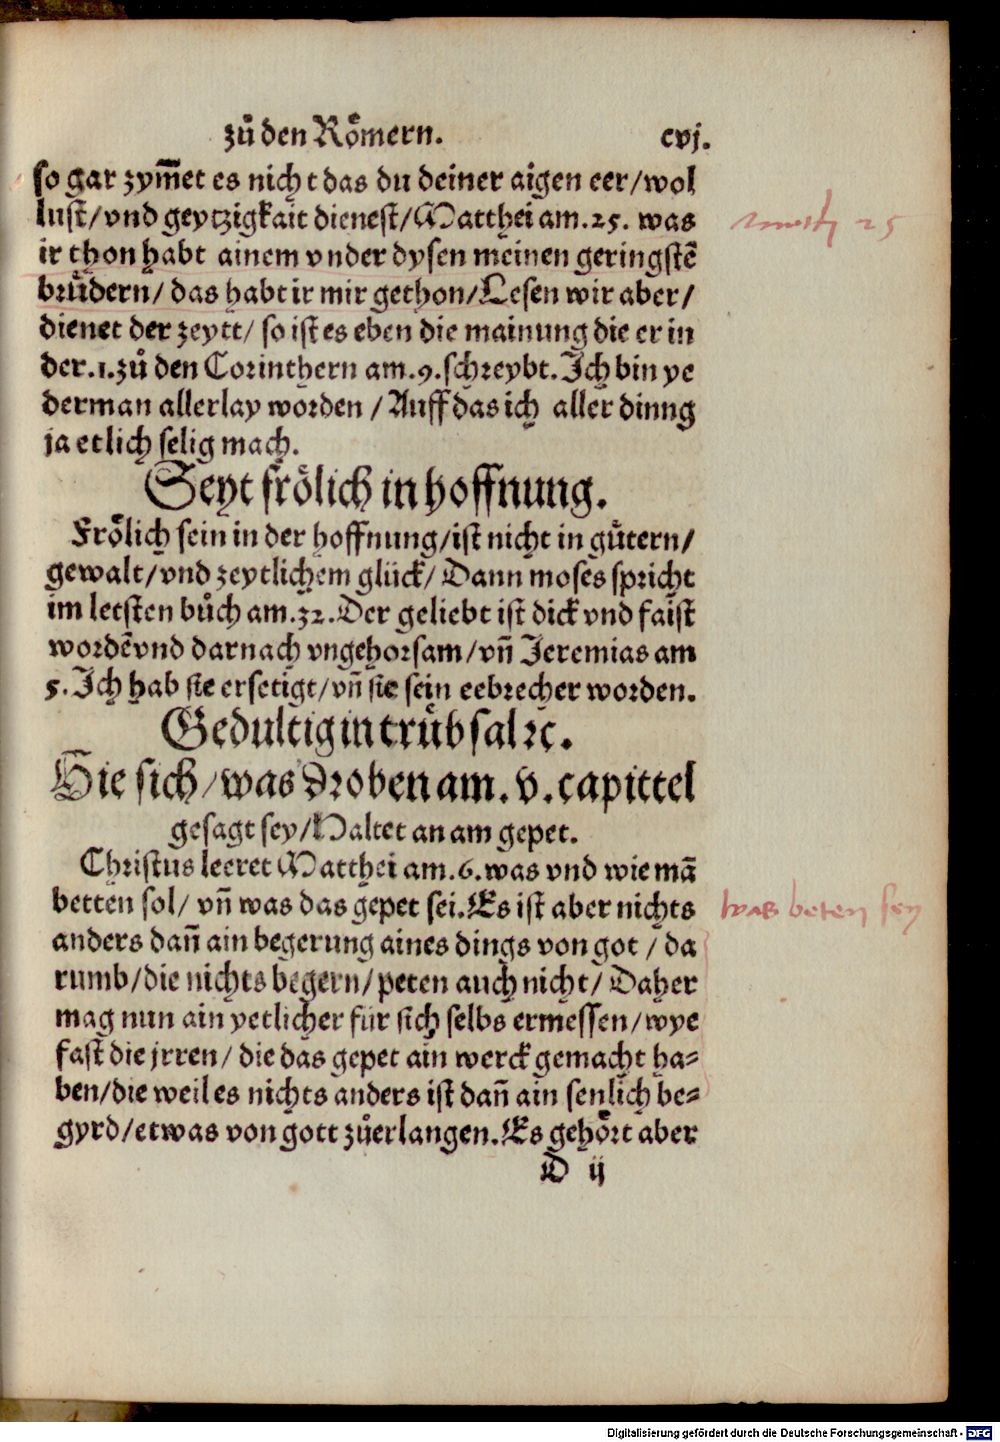 zů den Roͤmern. cvj.
so gar zym̅et es nicht das du deiner aigen eer/wol
lust/vnd geytzigkait dienest/Matthei am.25. was
ir thon habt ainem vnder dysen meinen geringstē
bruͤdern/das habt ir mir gethon/Lesen wir aber/
dienet der zeytt/ so ist es eben die mainung die er in
der.1.zů den Corinthern am.9.schreybt.Ich bin ye
derman allerlay worden /Auff das ich aller dinng
ja etlich selig mach.
Seyt froͤlich in hoffnung.
Froͤlich sein in der hoffnung/ist nicht in guͤtern/
gewalt/vnd zeytlichem gluͤck/ Dann moses spricht
im letsten bůch am.32.Der geliebt ist dick vnd faist
wordēvnd darnach vngehorsam/vn̄ Jeremias am
5.Ich hab sie ersetigt/vn̄ sie sein eebrecher worden.
Gedultig in truͤbsal ꝛc.
Hie sich/was droben am.v.capittel
gesagt sey/Haltet an am gepet.
Christus leeret Matthei am.6.was vnd wie mā
betten sol/ vn̄ was das gepet sei.Es ist aber nichts
anders dan̄ ain begerung aines dings von got / da
rumb/die nichts begern/peten auch nicht/ Daher
mag nun ain yetlicher fuͤr sich selbs ermessen/wye
fast die jrren/ die das gepet ain werck gemacht ha⸗
ben/die weil es nichts anders ist dan̄ ain senlich be⸗
gyrd/etwas von gott zůerlangen.Es gehoͤrt aber
D ij
25
was beten sey
Digitalisierung gefördert durch die Deutsche Forschungsgemeinschaft - DFG